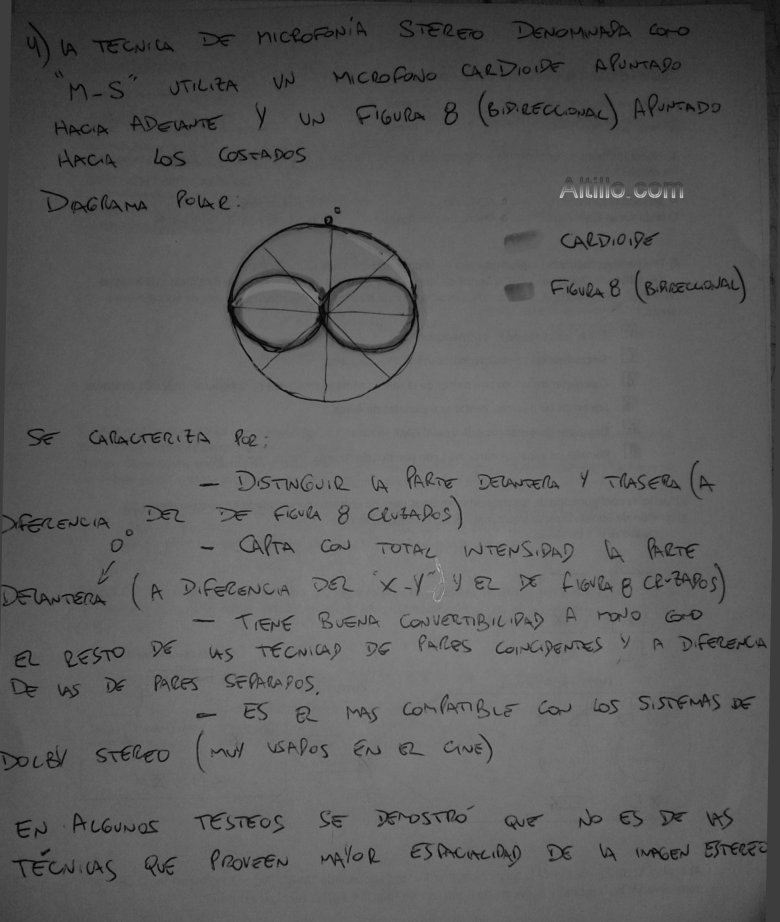 4) LA TECNICA DE MICROFONÍA STEREO DENOMINADA COMO
"M-S" UTILIZA UN MICROFONO CARDIOIDE APUNTADO
HACIA ADELANTE Y UN FIGURA 8 (BIDIRECCIONAL) APUNTADO
HACIA LOS COSTADOS
Altillo.com
DIAGRAMA POLAR:
0°
CARDIOIDE
FIGURA 8 (BIDIRECCIONAL)
SE CARACTERIZA POR:
- DISTINGUIR LA PARTE DELANTERA Y TRASERA (A
DIFERENCIA DEL DE FIGURA 8 CRUZADOS)
0°
- CAPTA CON TOTAL INTENSIDAD LA PARTE
DELANTERA (A DIFERENCIA DEL "X-Y" Y EL DE FIGURA 8 CRUZADOS)
- TIENE BUENA CONVERTIBILIDAD A MONO COMO
EL RESTO DE LAS TÉCNICAS DE PARES COINCIDENTES Y A DIFERENCIA
DE LAS DE PARES SEPARADOS.
- ES EL MAS COMPATIBLE CON LOS SISTEMAS DE
DOLBY STEREO (MUY USADOS EN EL CINE)
EN ALGUNOS TESTEOS SE DEMOSTRÓ QUE NO ES DE LAS
TÉCNICAS QUE PROVEEN MAYOR ESPACIALIDAD DE LA IMAGEN ESTEREO